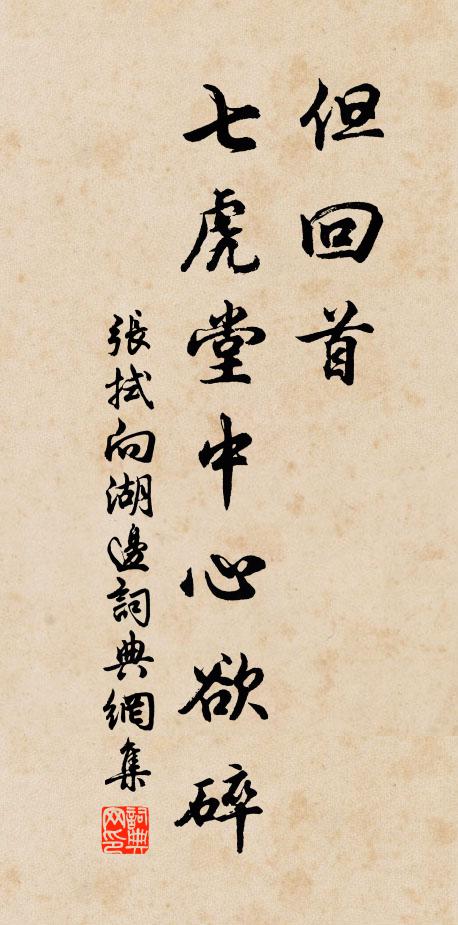 但回首
七虎堂中心欲碎
張拭向湖邊詞典網集
詞典网印